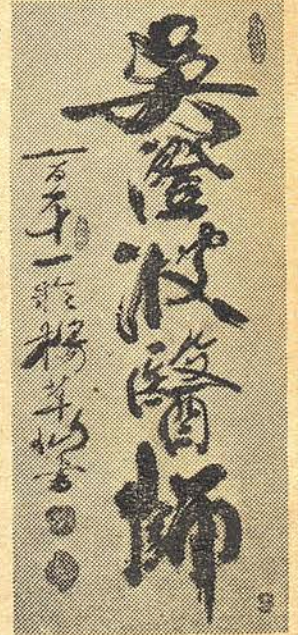 吳澄波醫師
一百十一齡楊草仙書